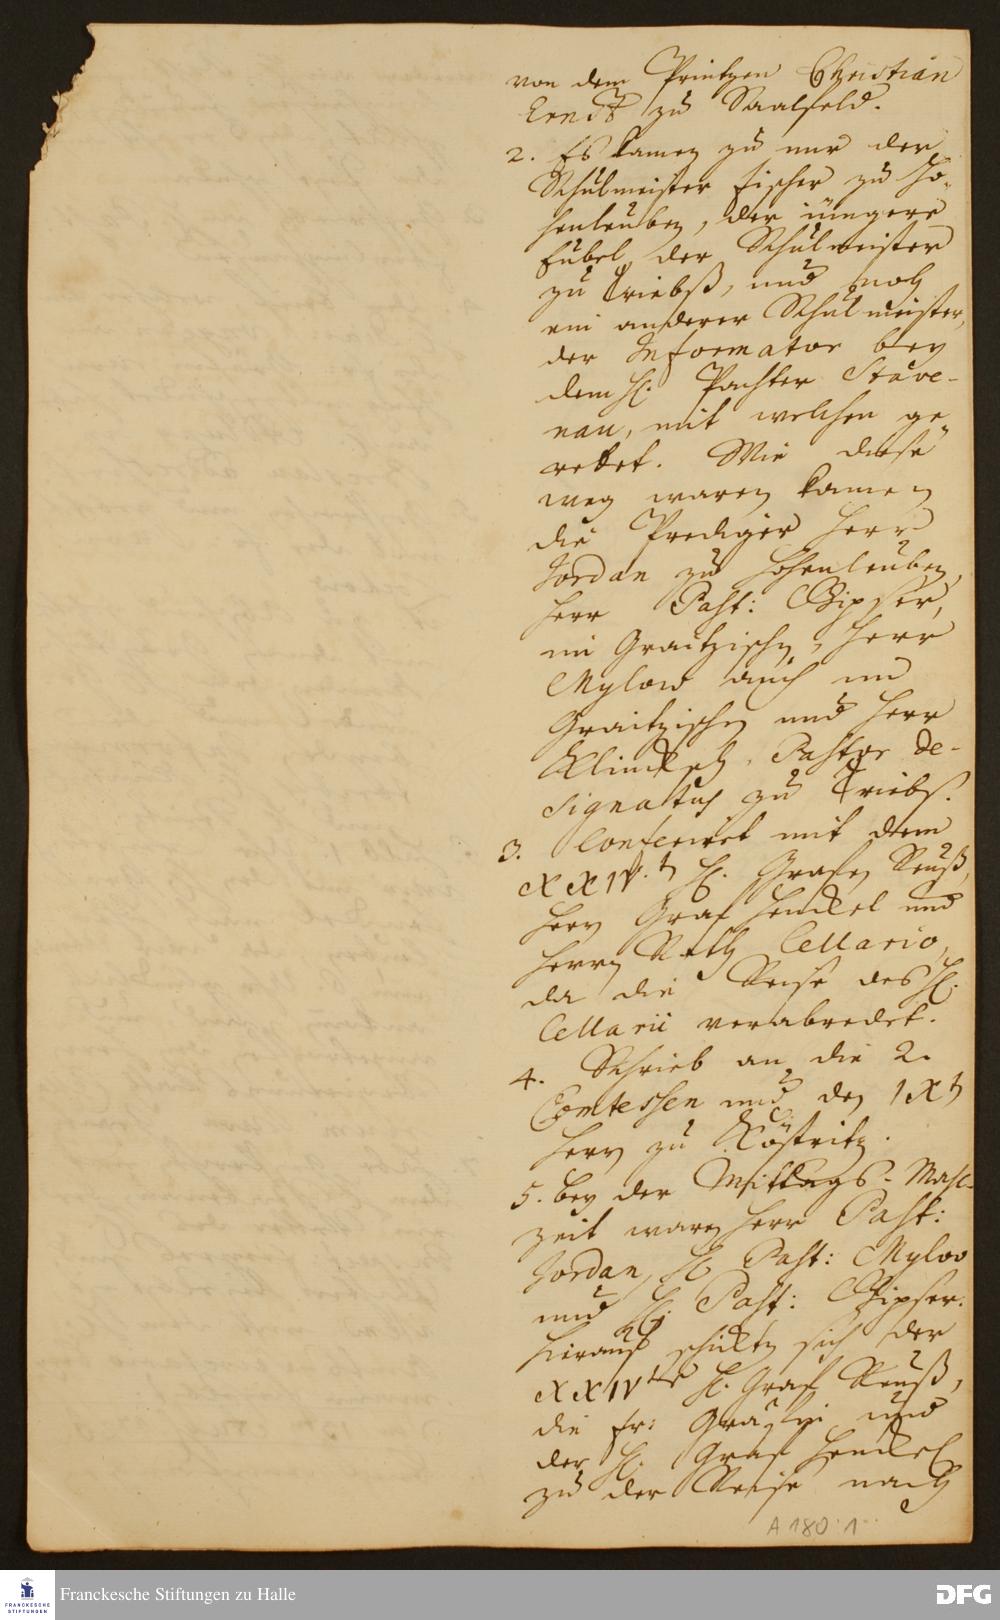 von dem Printzen Christian
Ernst zu Saalfeld.
2. Es kamen zu mir der
Schulmeister Fischer zu Ho-
henleuben, der iüngere
Fubel, der Schulmeister
zu Triebß, und noch
ein anderer Schulmeister,
der Informator bey
dem H. Pachter Stäve-
nau, mit welchen ge-
redet. Wie diese
weg waren kamen
die Prediger Herr
Jordan zu Hohenleuben,
Herr Past: Gipser,
im Graitzischen, Herr
Mylow auch im
Graitzischen und Herr
Past or De-
signatus zu Triebs.
3. Conferiret mit dem
XXIV.t H. Grafen Reuß,
Herrn Graf Henckel und
Herrn Rath Cellario,
da die Reise des H.
Cellarii verabredet.
4. Schrieb an die 2.
Comtessen und den IXt
Herrn zu Köstritz.
5. bey der Mittags-Mahl-
zeit waren Herr Past:
Jordan, H. Past: Mylow
und H. Past: Gipser.
hierauf schickten sich der
XXIVte H. Graf Reuß,
die Fr: Gräfin und
der H. Graf Henckel
zu der Reise nach
A 180 : 1
Franckesche Stiftungen
Franckesche Stiftungen zu Halle
DFG